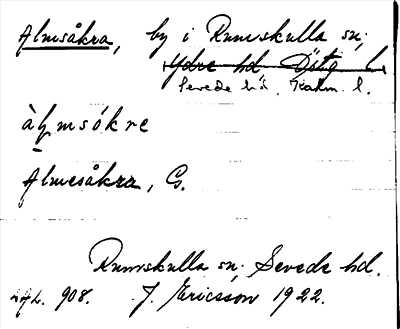 Almsåkra, by i Rumskulla sn;
Ydre hd Östg l.
Sevede hd, Kalm. l.
àl̥msókre
Almesåkra, G.
Rumskulla sn; Sevede hd.
908. J. Ericsson 1922.